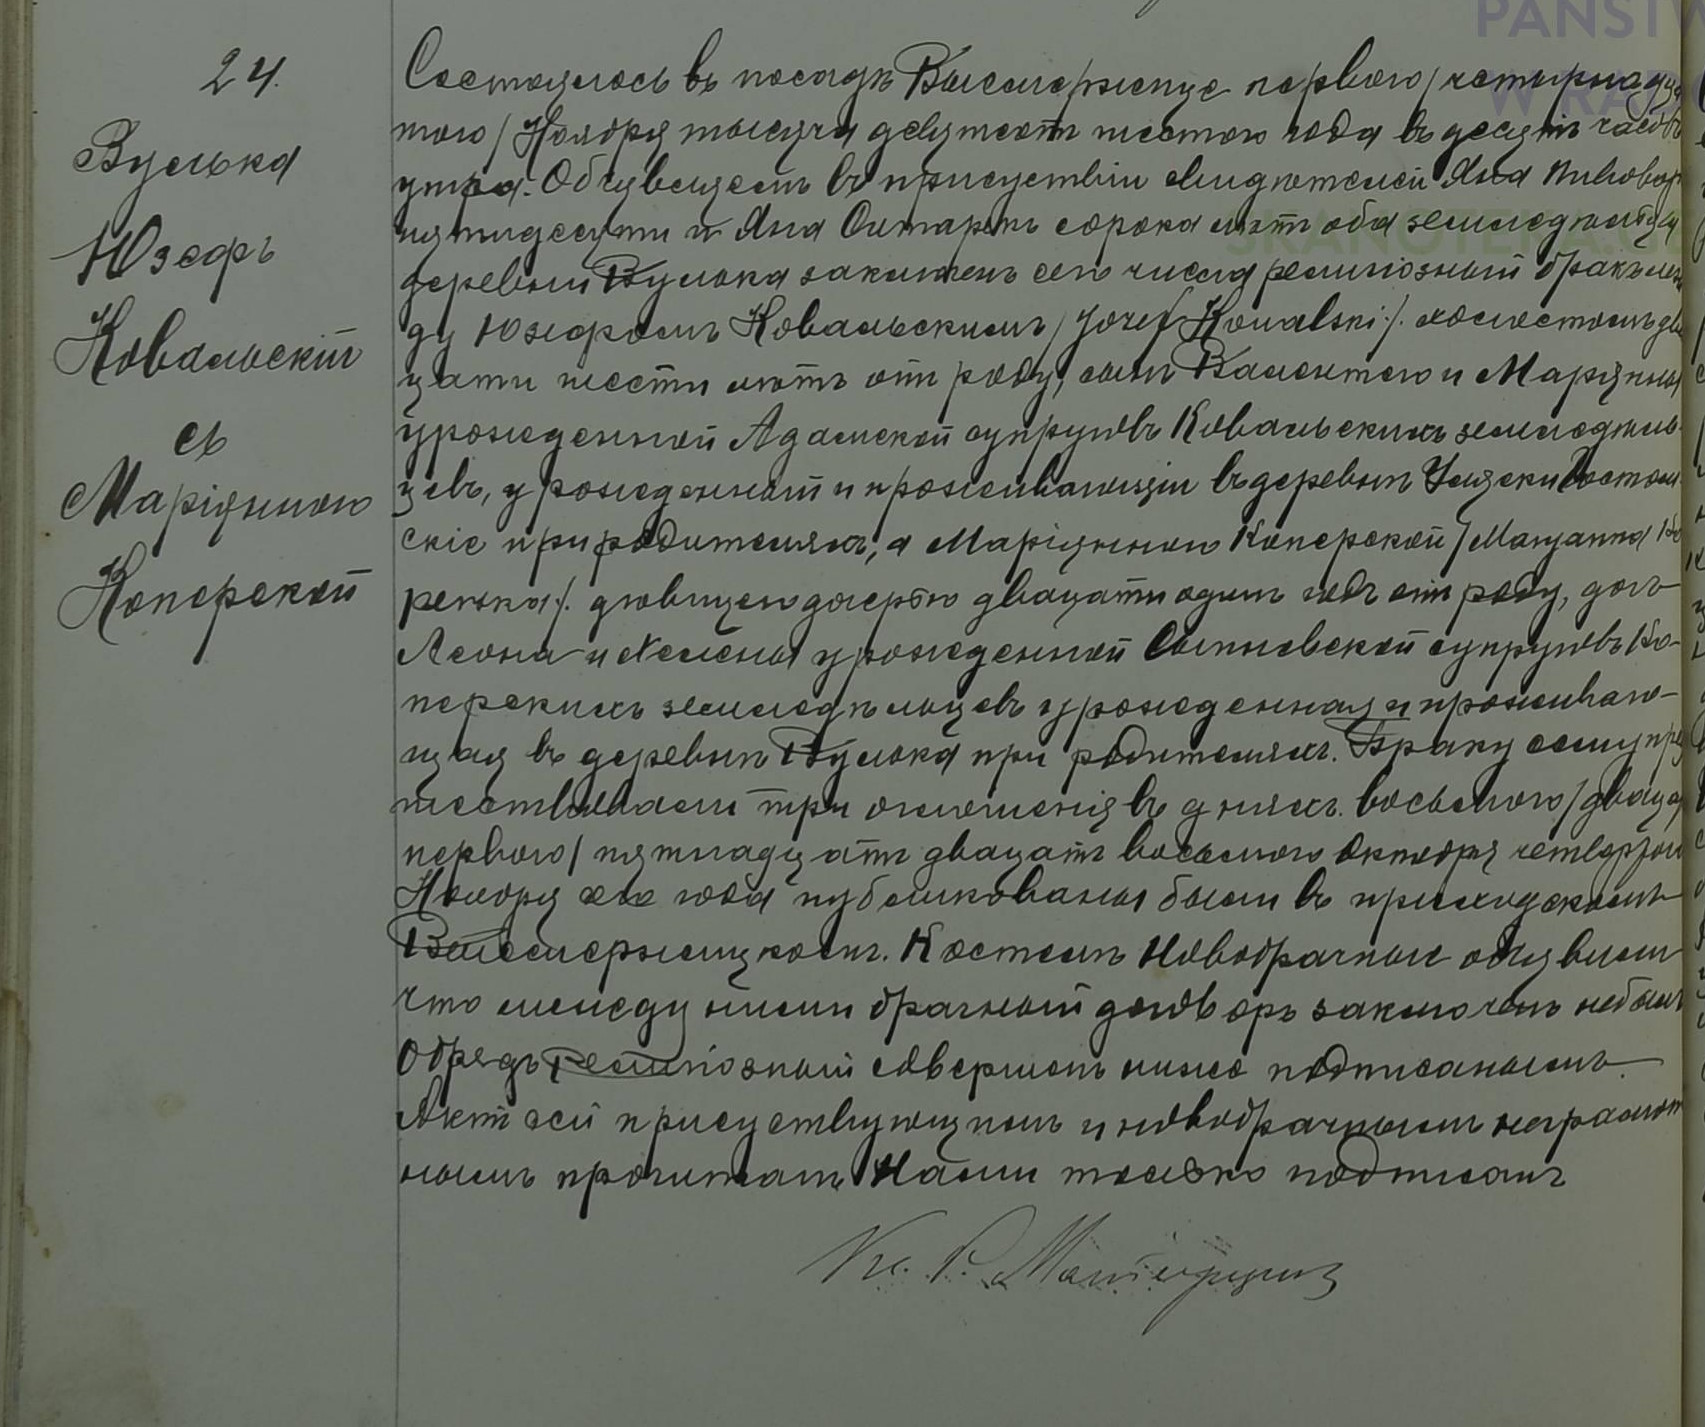 PAŃSTW
W RAD
SKANOTEKA
24.
Вулька
Юзефъ
Ковальскій
съ
Маріянною
Коперской
Состоялось въ посадѣ Высмержице перваго / четырнадца
таго / Ноября тысяча девятсотъ шестого года въ десять часовъ
утра. Объявляемъ въ присуствіи свидѣтелей Яна
пятидесяти и Яна сорока лѣтъ оба земледѣльцы
деревни Вулька заключенъ сего числа религіозный бракъ меж
ду Юзефомъ Ковальскимъ / Józef Kowalski /. холостомъ два
цати шести лѣтъ отъ роду, сынъ Валентего и Маріянны
урожденной Адамской супруговъ Ковальскихъ земледѣль
цевъ, урожденный и проживающій въ деревни
скіе при родителяхъ, а Маріянною Коперской / Maryanna Ko
perska /. дѣвицею дочерью двацати одинъ годъ отъ роду, дочь
Леона и Хелены урожденной супруговъ Ко-
перскихъ земледѣльцевъ урожденная и проживаю-
щая въ деревни Вулька при родителяхъ. Браку сему пред
шествовали три оглошенія въ дняхъ. восьмого / двацать
первого / пятнадцать двацать восьмого Октября четвертого
Ноября сего года публикованы были въ приходскомъ
Высмержицкомъ. Костелѣ Новобрачные объявили
что между ними брачный договоръ заключенъ не былъ
Обрядъ религіозный совершенъ ниже подписанымъ.
Актъ сей присуствующимъ и новобрачнымъ неграмот
нымъ прочитанъ Нами только подписанъ
Кс. Р.